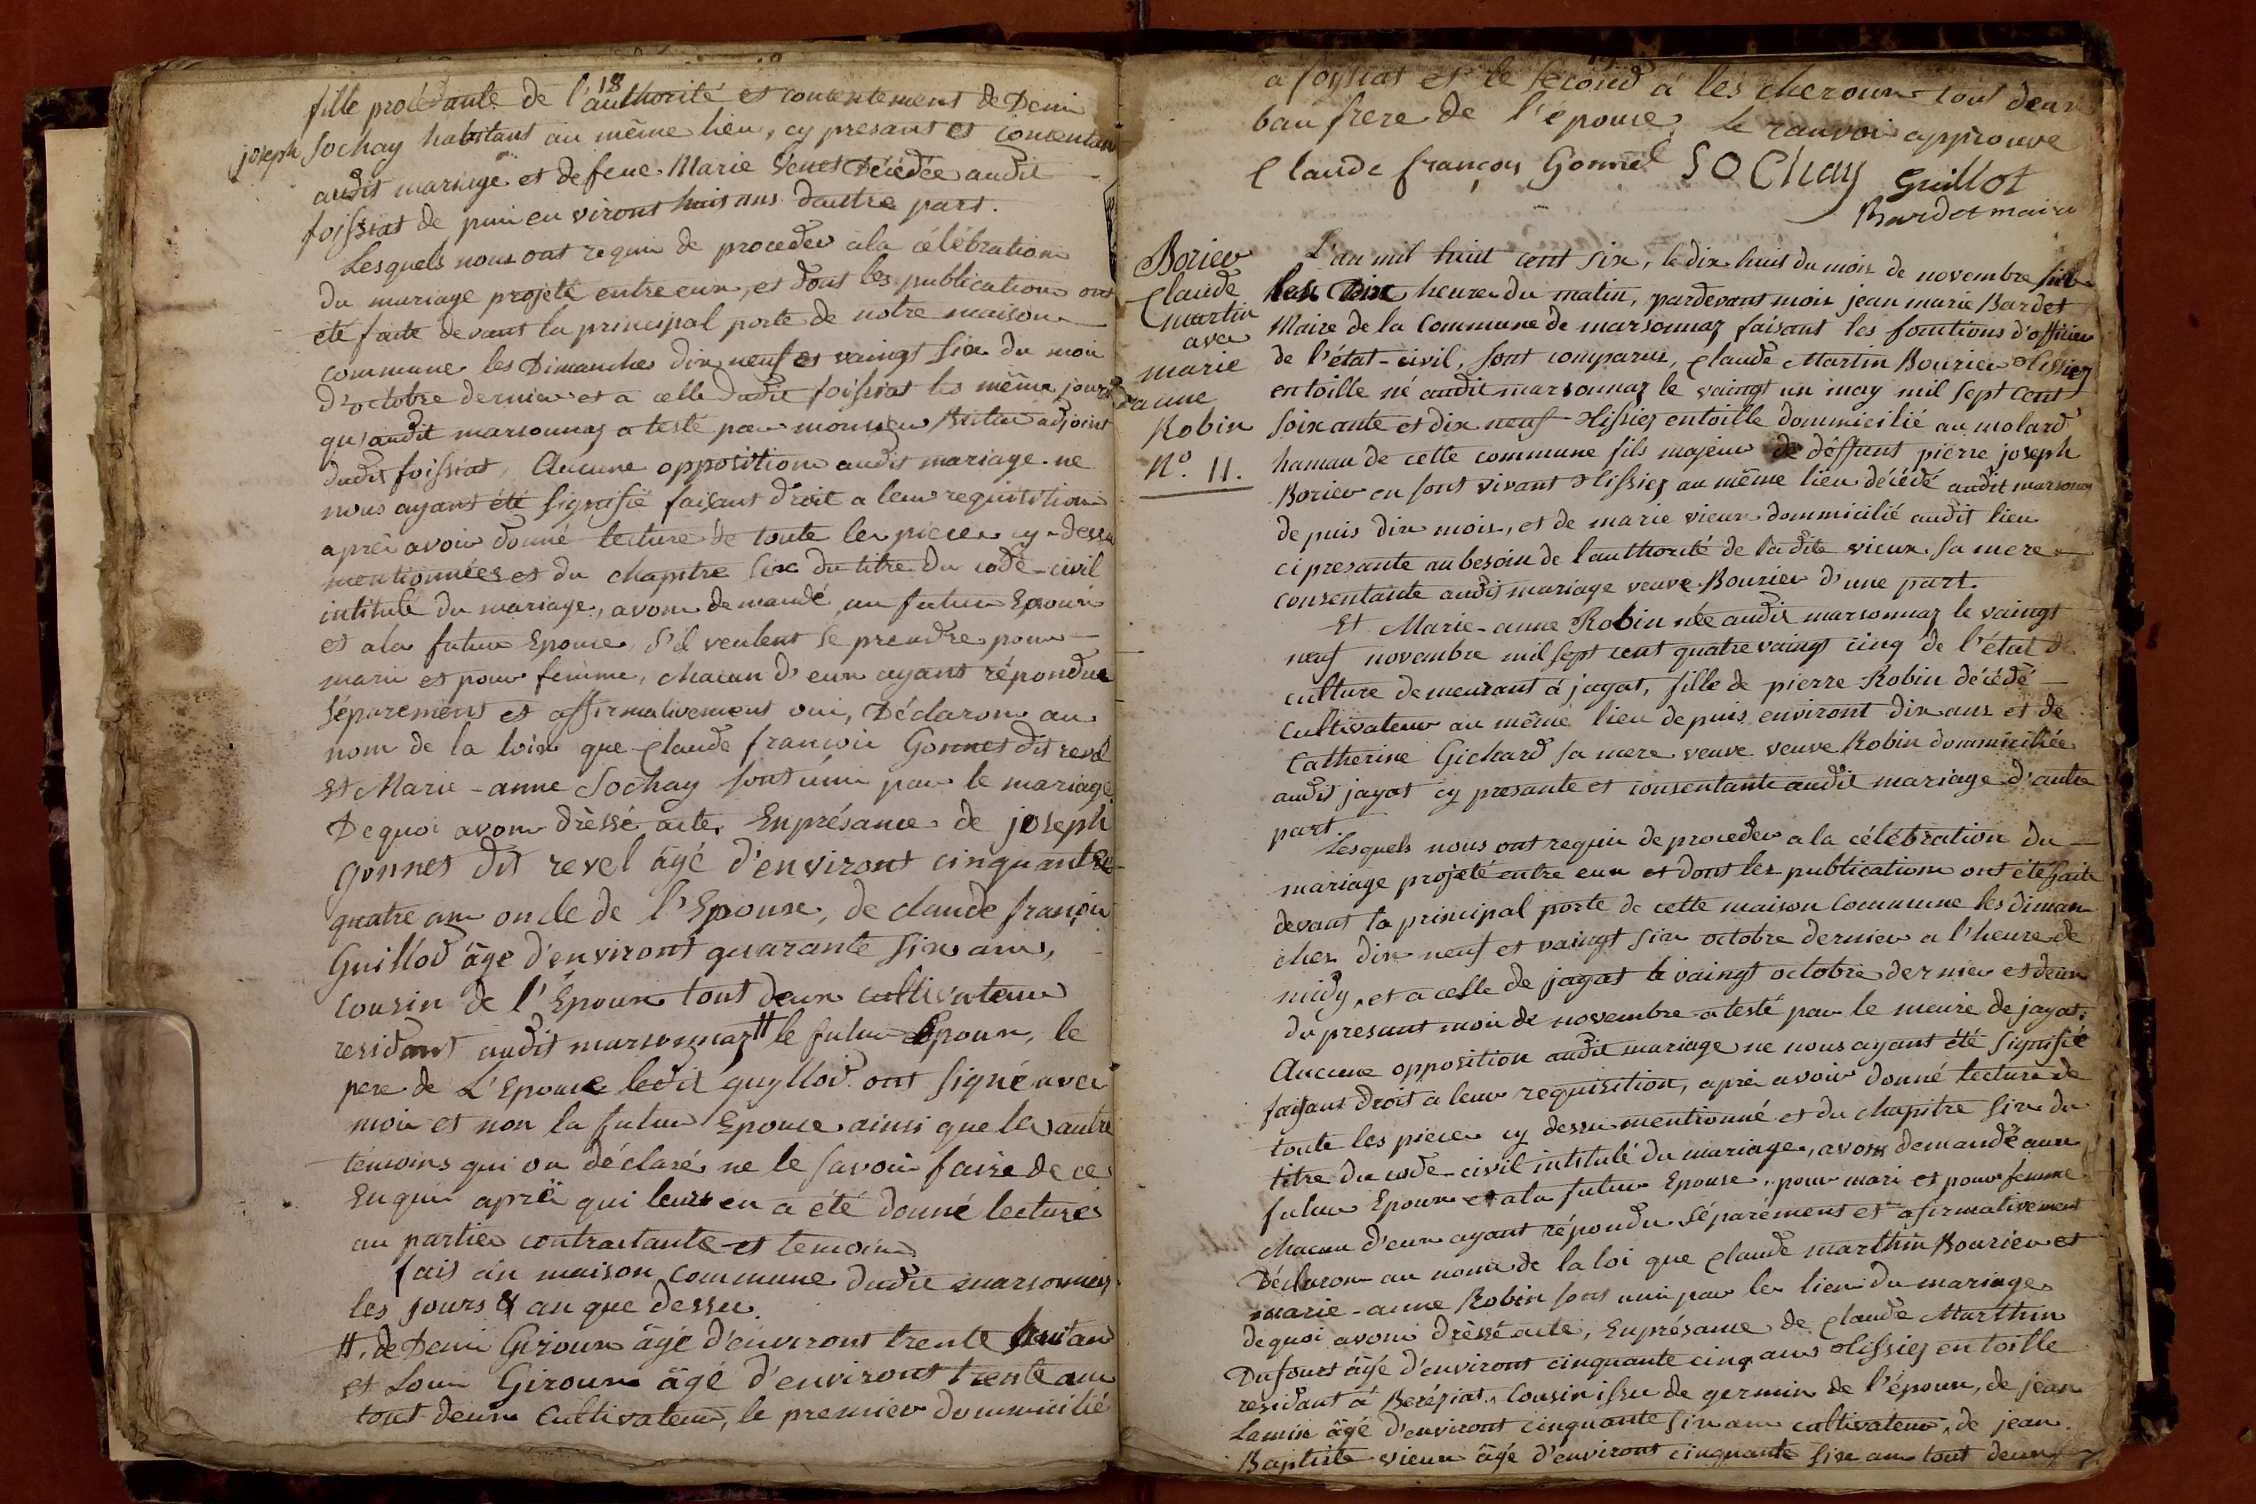 18
fille procédante de l'authorité et consentement de Deni
joseph Sochay habitant au même lieu, cy presant et consentan
audit mariage et de feue Marie Venet décédée audit
foissiat de puis environt huit ans d'autre part.
Lesquels nous ont requis de proceder a la célébration
du mariage projeté entre eux, et dont les publications ont
été faite devant la principal porte de notre maison
commune les Dimanches dix neuf et vaingt six du mois
d'octobre dernier et a celle dudit foissiat les même jours
qu'audit marsonnaz atesté par monsieur adjoint
dudit foissiat, Aucune opposition audit mariage ne
nous ayant été signifié faisant droit a leur requisition
après avoir donné lecture de toute les pieces cy-dessu
mentionnées et du chapitre six du titre du code-civil
intitulé du mariage, avons demandé au futur Epoux
et a la futur Epouse, s'il veulent se prendre pour
mari et pour femme, chacun d'eux ayant répondue
séparement et affirmativement oui, Déclarons au
nom de la loix que Claude françois Gonnet dit revel
Et Marie-anne Sochay sont unis par le mariage
De quoi avons drèssé acte. En présance de joseph
gonnet dit revel âgé d'environt cinquante
quatre ans oncle de l'Epoux, de claude françois
Guillod âge d'environt quarante six ans,
cousin de l'Epoux tout deux cultivateur
residant audit marsonnaz # le futur Epoux, le
pere de L'Epouse ledit guyllod ont signé avec
moi et non la futur Epouse ainsi que les autre
temoins qui on déclaré ne le savoir faire de ce
Enquis après qui leurs en a été donné lecture
au parties contractante et temoins
fais en maison commune dudit marsonnaz
les jours & an que dessu.
#. de Deni Giroux âgé d'environt trente huit ans
et Loui Giroux âgé d'environt trente ans
tout deux cultivateur, le premier dommicilié
a foissiat et le second à les cheroux tout deux
bau frere de l'épouse, le ranvoi approuve
Claude françois Gonnet SOChay Guillot
Bardet maire
Borier
Claude
martin
avec
marie
anne
Robin
N.º 11.
L'an mil huit cent six, le dix huit du mois de novembre sur
les dix heures du matin, pardevant moi jean marie Bardet
Maire de la Commune de marsonnaz faisant les fonctions d'officier
de l'état-civil, sont comparus, Claude Martin Bourier tissier
en toille né audit marsonnaz le vaingt un may mil sept cent
soixante et dix neuf tissier en toille dommicilié au molard
hamau de cette commune fils majeur de déffunt pierre joseph
Borier en sont vivant tissier au même lieu décédé audit marsonnaz
depuis dix mois, et de marie vieux dommicilié audit lieu
ci presante au besoin de l'authorité de ladite vieux sa mere
consentante audit mariage veuve Bourier d'une part.
Et Marie-anne Robin née audit marsonnaz le vaingt
neuf novembre mil sept cent quatre vaingt cinq de l'état de
culture demeurant à jayat, fille de pierre Robin décédé
cultivateur au même lieu depuis environt dix ans et de
Catherine Gichard sa mere veuve veuve Robin dommiciliée
audit jayat cy presante et consentante audit mariage d'autre
part.
Lesquels nous ont requis de proceder a la célébration du
mariage projeté entre eux et dont les publication ont été faite
devant la principal porte de cette maison Commune les diman
ches dix neuf et vaingt six octobre dernier a l'heure de
midy, et a celle de jayat le vaingt octobre dernier et deux
du presant mois de novembre atesté par le meire de jayat.
Aucune opposition audit mariage ne nous ayant été signifié
faisant droit a leur requisition, après avoir donné lecture de
toute les pieces cy dessu mentionné et du chapitre six du
titre du code-civil intitulé du mariage, avons demandé aux
futur Epoux et a la futur Epouse, pour mari et pour femme
chacun d'eux ayant répondu séparement et afirmativement
Déclarons au nom de la loi que Claude marthin Bourier et
marie-anne Robin sont uni par les lien du mariage
de quoi avons drèssé acte, En présance de Claude Marthin
Dufour âgé d'environt cinquante cinq ans tissier en toille
residant à Beréziat, Cousin issu de germin de l'époux, de jean
Lamin âgé d'environt cinquante six ans cultivateur, de jean
Baptiste vieux âgé d'environt cinquante six ans tout deux